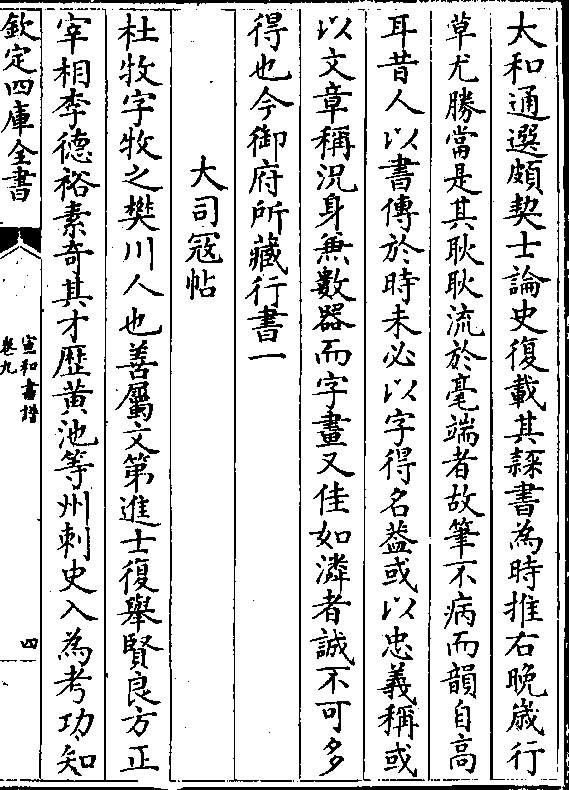 太和通選頗契士論史復載其𨽻書為時推右晚歲行
草尤勝當是其耿耿流於毫端者故筆不病而韻自高
耳昔人以書傳於時未必以字得名葢或以忠義稱或
以文章稱況身兼數器而字畫又佳如潾者誠不可多
得也今御府所藏行書一
大司冦帖
杜牧字牧之樊川人也善屬文第進士復舉賢良方正
宰相李德裕素奇其才歴黄池等州刺史入為考功知
欽定四庫全書
宣和書譜
卷九
四